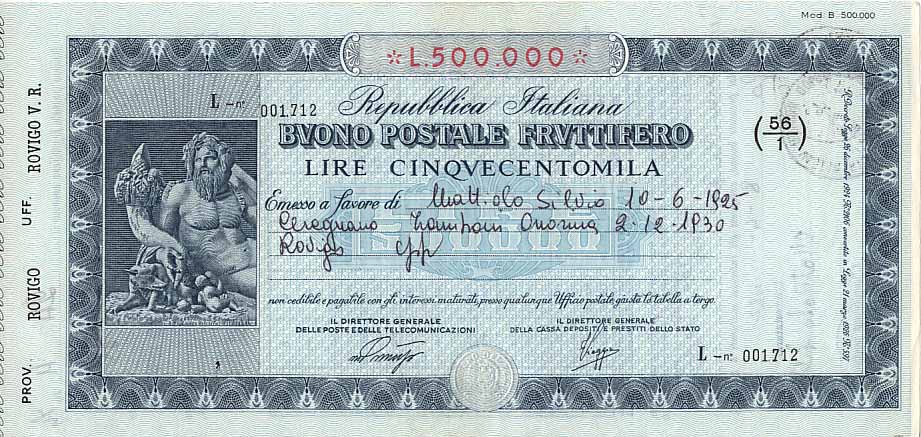 Mod. B. 500.000
*L.500.000*
L -n° 001.712
Repubblica Italiana
BVONO POSTALE FRVTTIFERO
LIRE CINQVECENTOMILA
(56/1)
Emesso a favore di Silvio 10-6-1925
Ceregnano 2-12-1930
Rovigo
non cedibile e pagabile con gli interessi maturati, presso qualunque Ufficio postale, giusta la tabella a tergo.
IL DIRETTORE GENERALE
DELLE POSTE E DELLE TELECOMUNICAZIONI
IL DIRETTORE GENERALE
DELLA CASSA DEPOSITI E PRESTITI DELLO STATO
L -n° 001712
PROV. ROVIGO UFF. ROVIGO V. R.